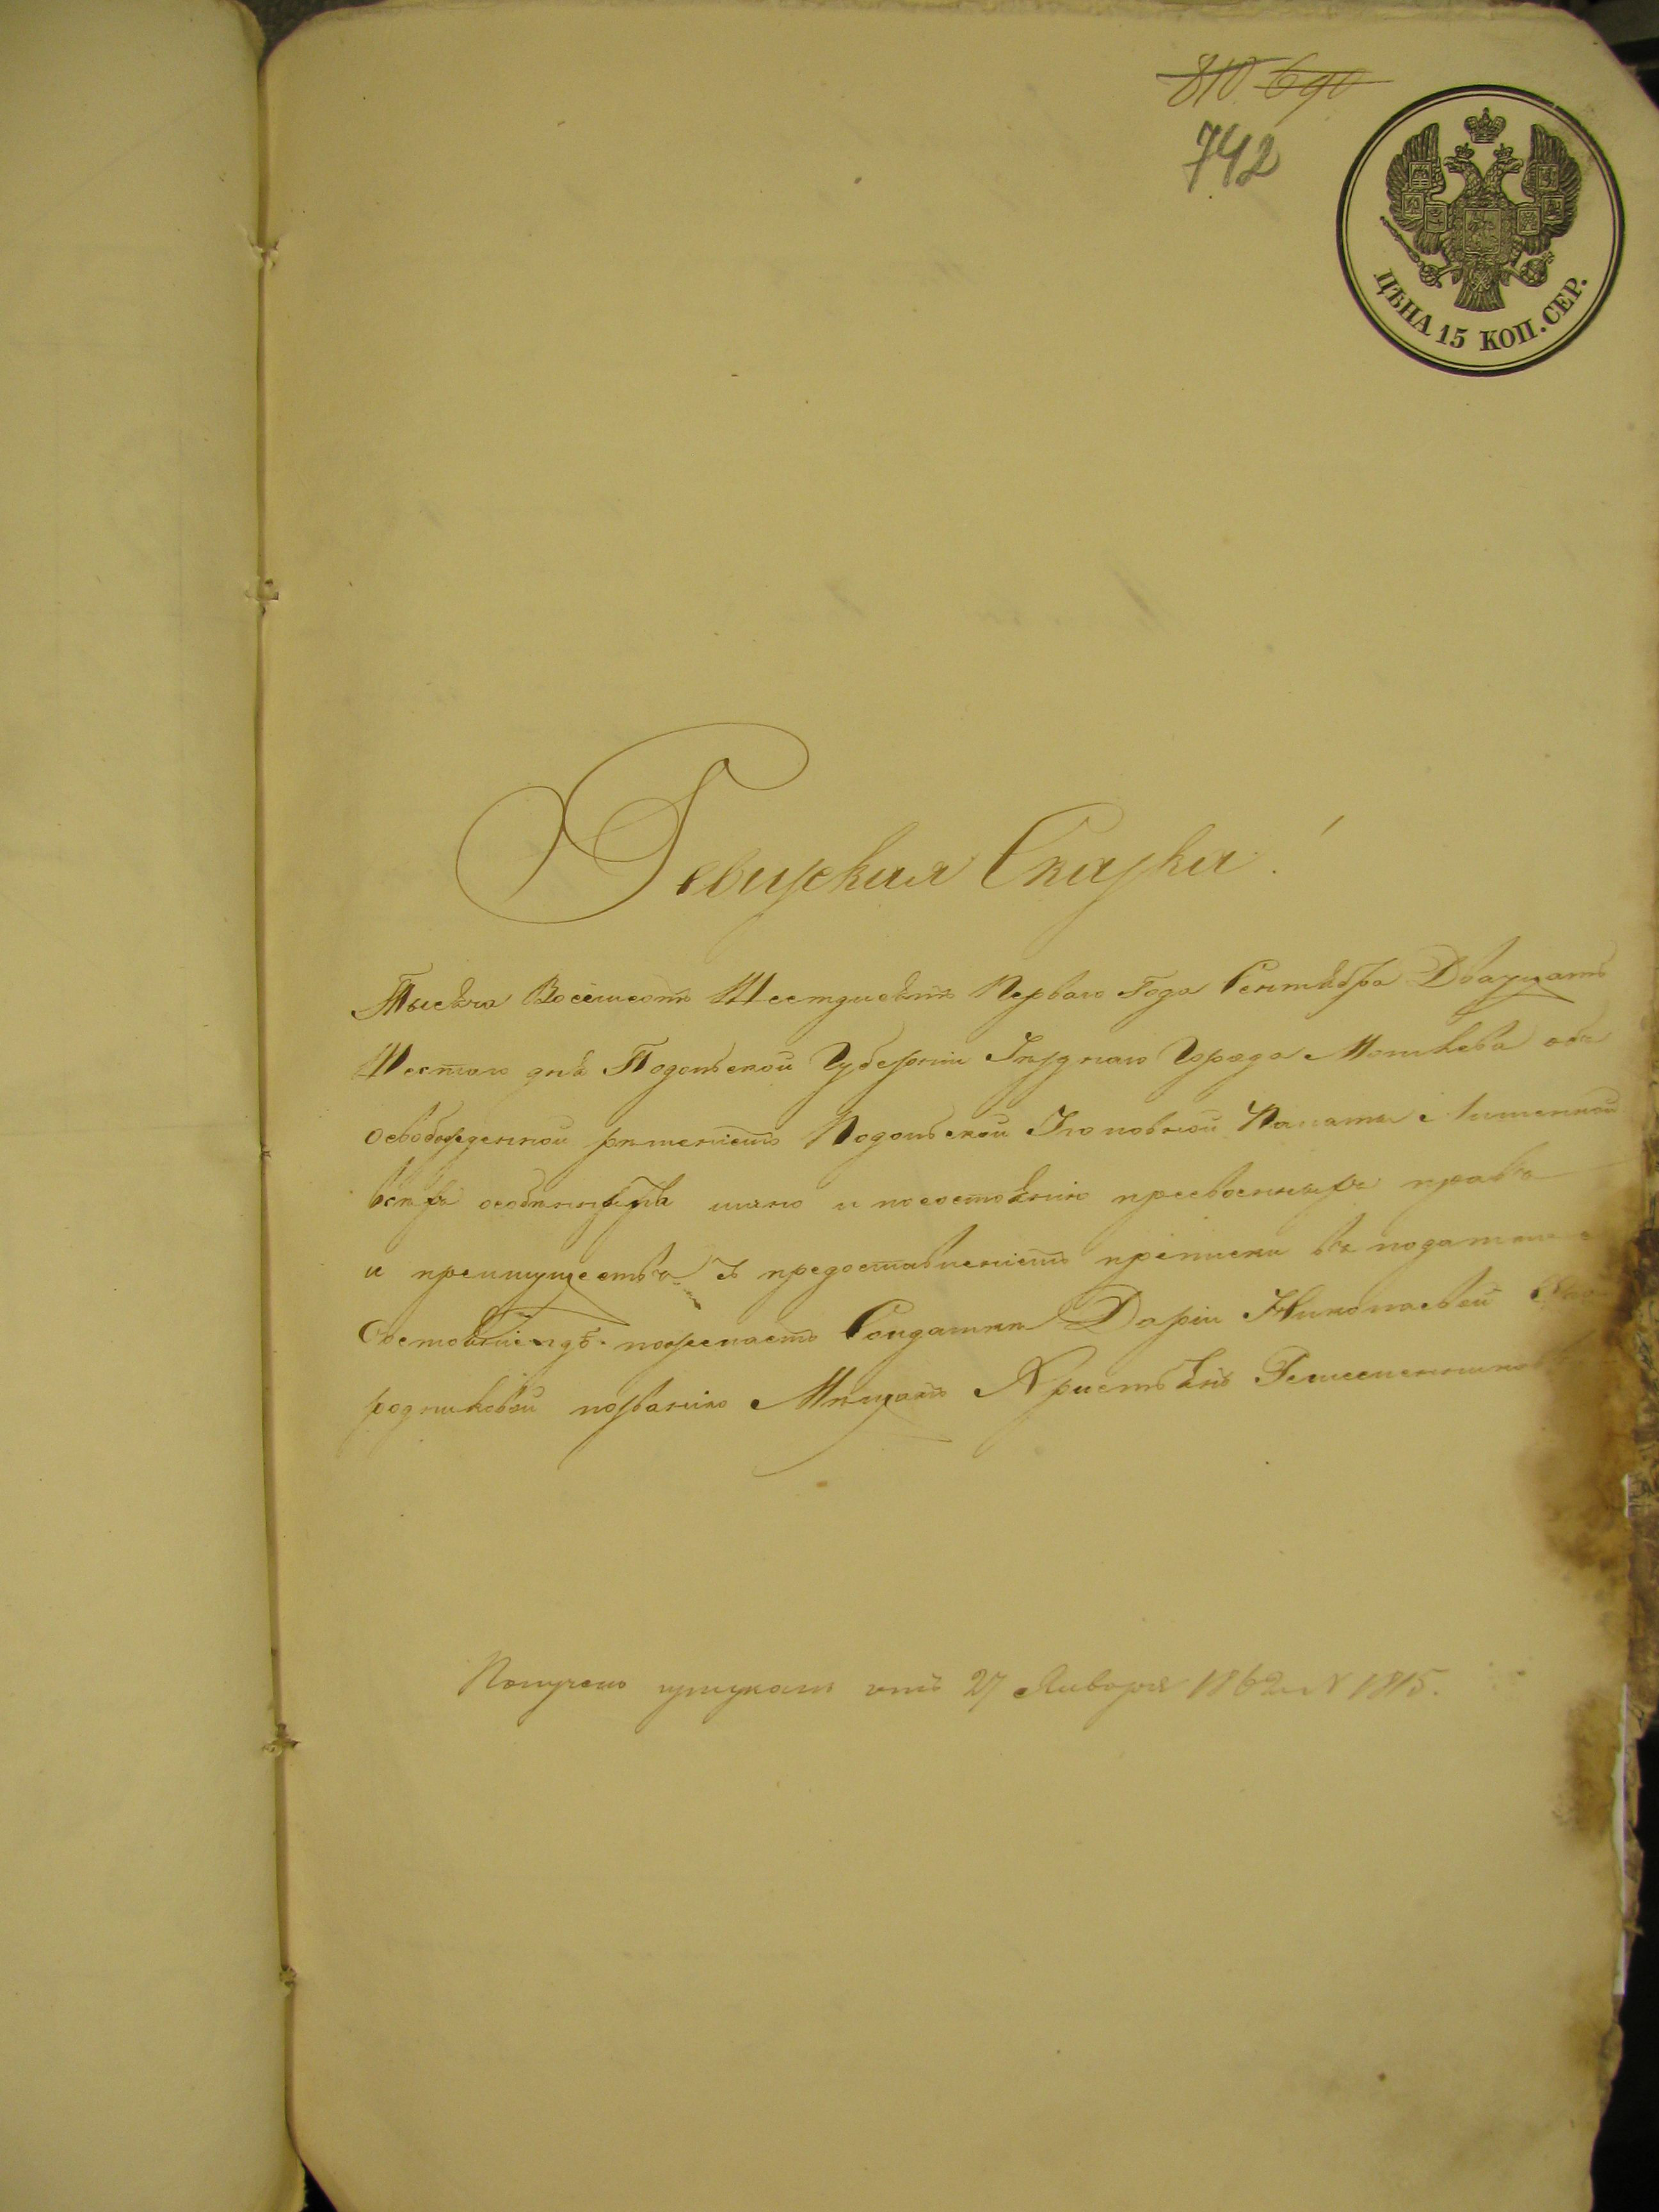 810 690
742
ЦѢНА 15 КОП. СЕР.
Ревизская Сказка!
Тысяча Восемсотъ Шестдисятъ Перваго Года Сентября Двадцать
Шестого дня Подольской Губерніи Уѣзднаго Города Могилева объ
освобожденной рѣшеніемъ Подольской Уголовной Палаты Лишенной
всѣхъ особенныхъ лично и посостоянію присвоенныхъ правъ
и преимуществъ съ предоставленіемъ приписки въ податное
Состояніе гдѣ пожелаетъ Солдатки Даріи Николаевой
родниковой позванію Мѣщанъ Христьянъ
Получено при указѣ отъ 27 Января 1862 N 1815.